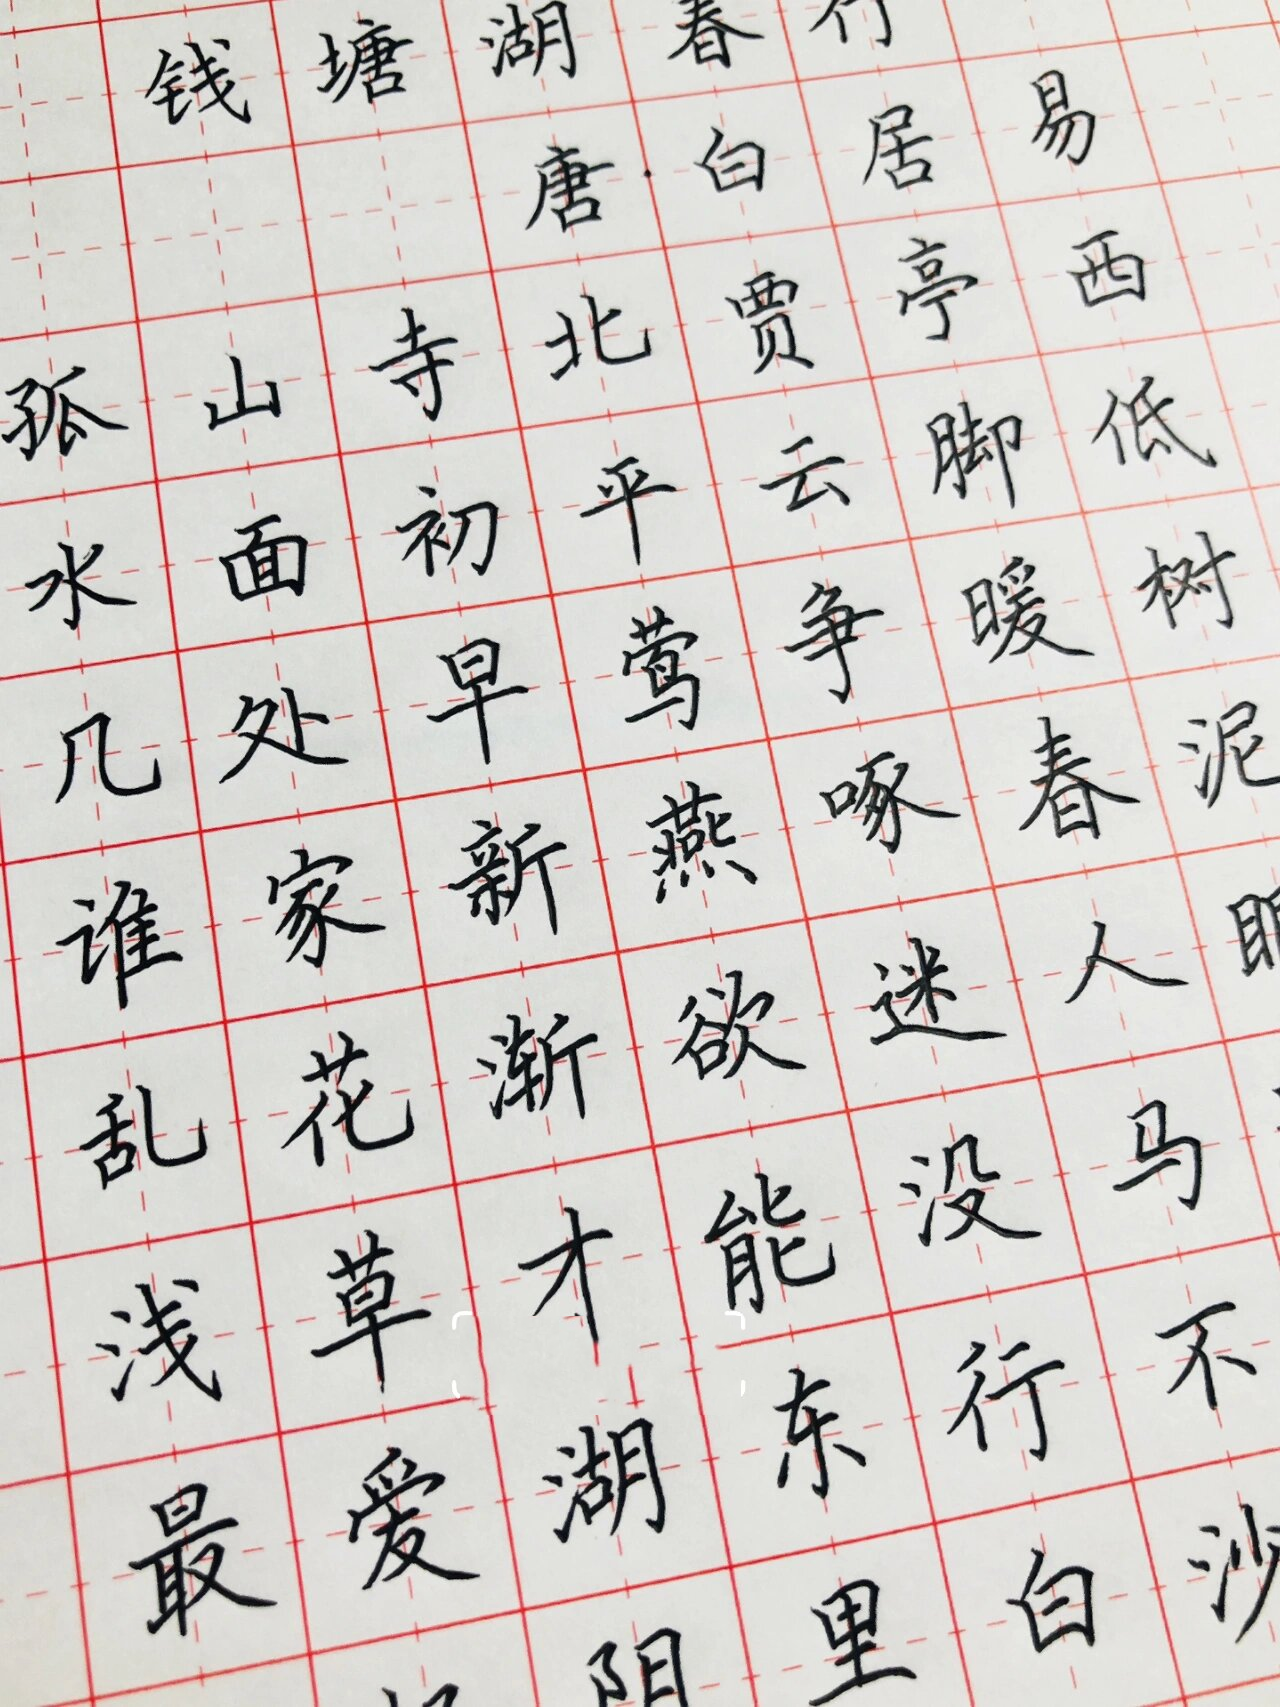 钱塘湖春行
唐·白居易
孤山寺北贾亭西
水面初平云脚低
几处早莺争暖树
谁家新燕啄春泥
乱花渐欲迷人眼
浅草才能没马
最爱湖东行不
阴里白沙